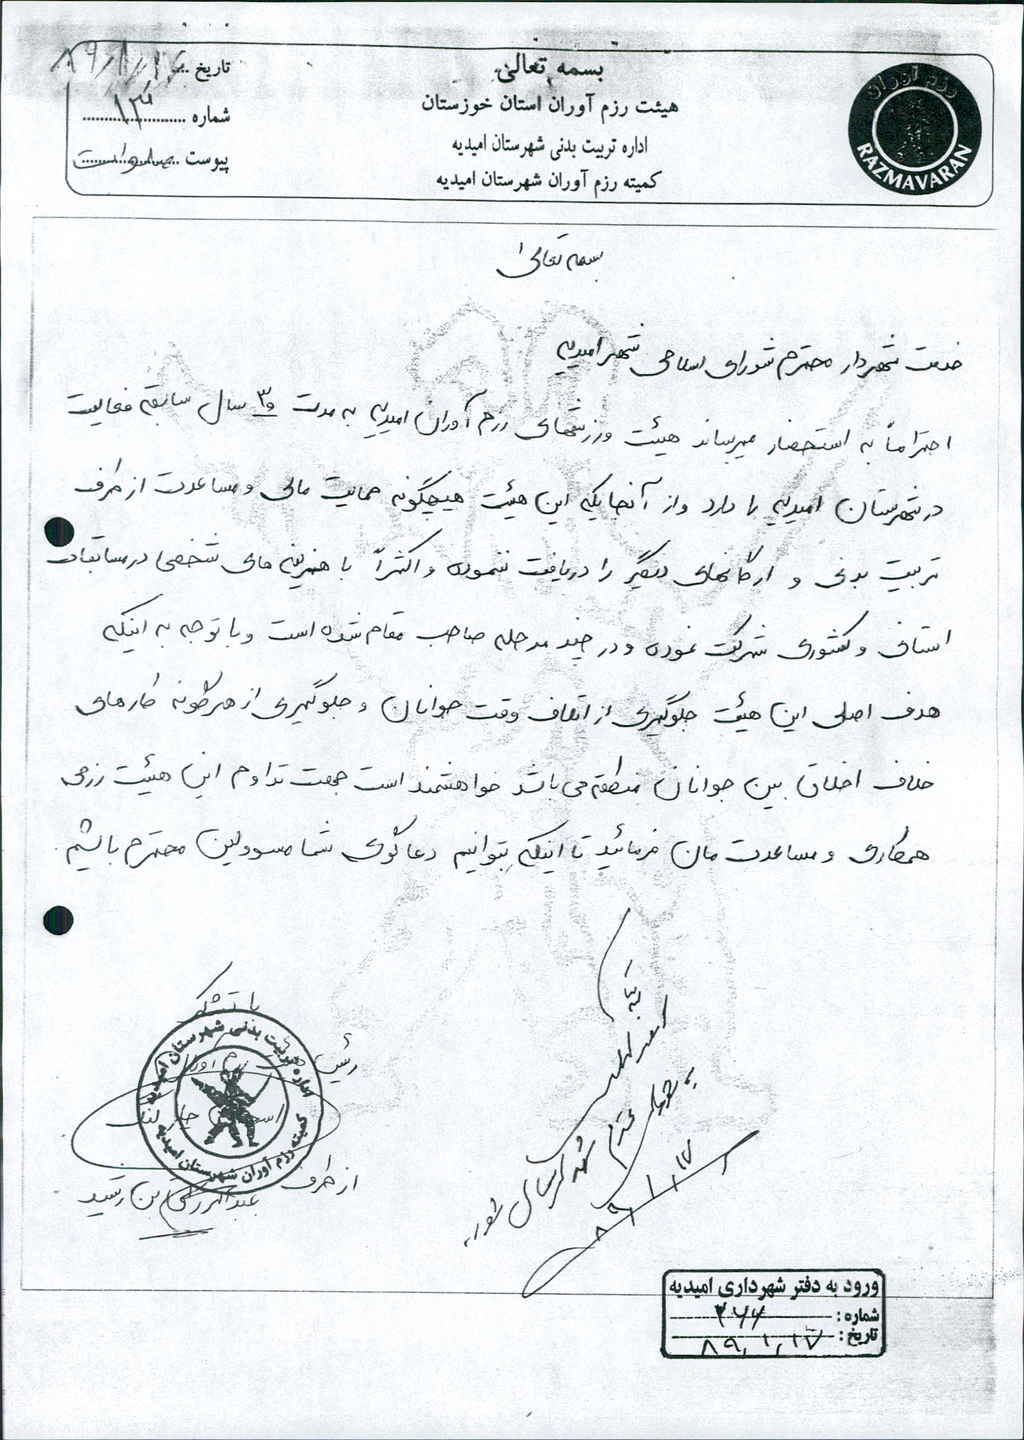 بسمه تعالی
هیئت رزم آوران استان خوزستان
اداره تربیت بدنی شهرستان امیدیه
کمیته رزم آوران شهرستان امیدیه
تاریخ
شماره
پیوست
رزم آوران
RAZMAVARAN
بسمه تعالی
خدمت شهردار محترم شورای اسلامی شهر امیدیه
احتراماً به استحضار میرساند هیئت ورزشهای رزم آوران امیدیه به مدت ۳۰ سال سابقه فعالیت
در شهرستان امیدیه را دارد و از آنجایکه این هیئت هیچگونه حمایت مالی و مساعدت از طرف
تربیت بدنی و ارگانهای دیگر را دریافت ننموده و اکثراً با هزینه های شخصی در مسابقات
استانی و کشوری شرکت نموده و در چند مرحله صاحب مقام شده است و با توجه به اینکه
هدف اصلی این هیئت جلوگیری از اتلاف وقت جوانان و جلوگیری از هرگونه کارهای
خلاف اخلاق بین جوانان منطقه می باشد خواهشمند است جهت تداوم این هیئت رزمی
همکاری و مساعدت مان فرمائید تا اینکه بتوانیم دعاگوی شما مسوولین محترم باشیم
با تشکر
رئیس
از طرف
اداره تربیت بدنی شهرستان امیدیه
کمیته رزم آوران شهرستان امیدیه
۸۹/۱/۱۷
ورود به دفتر شهرداری امیدیه
شماره : ۲۶۶
تاریخ : ۸۹/۱/۱۷